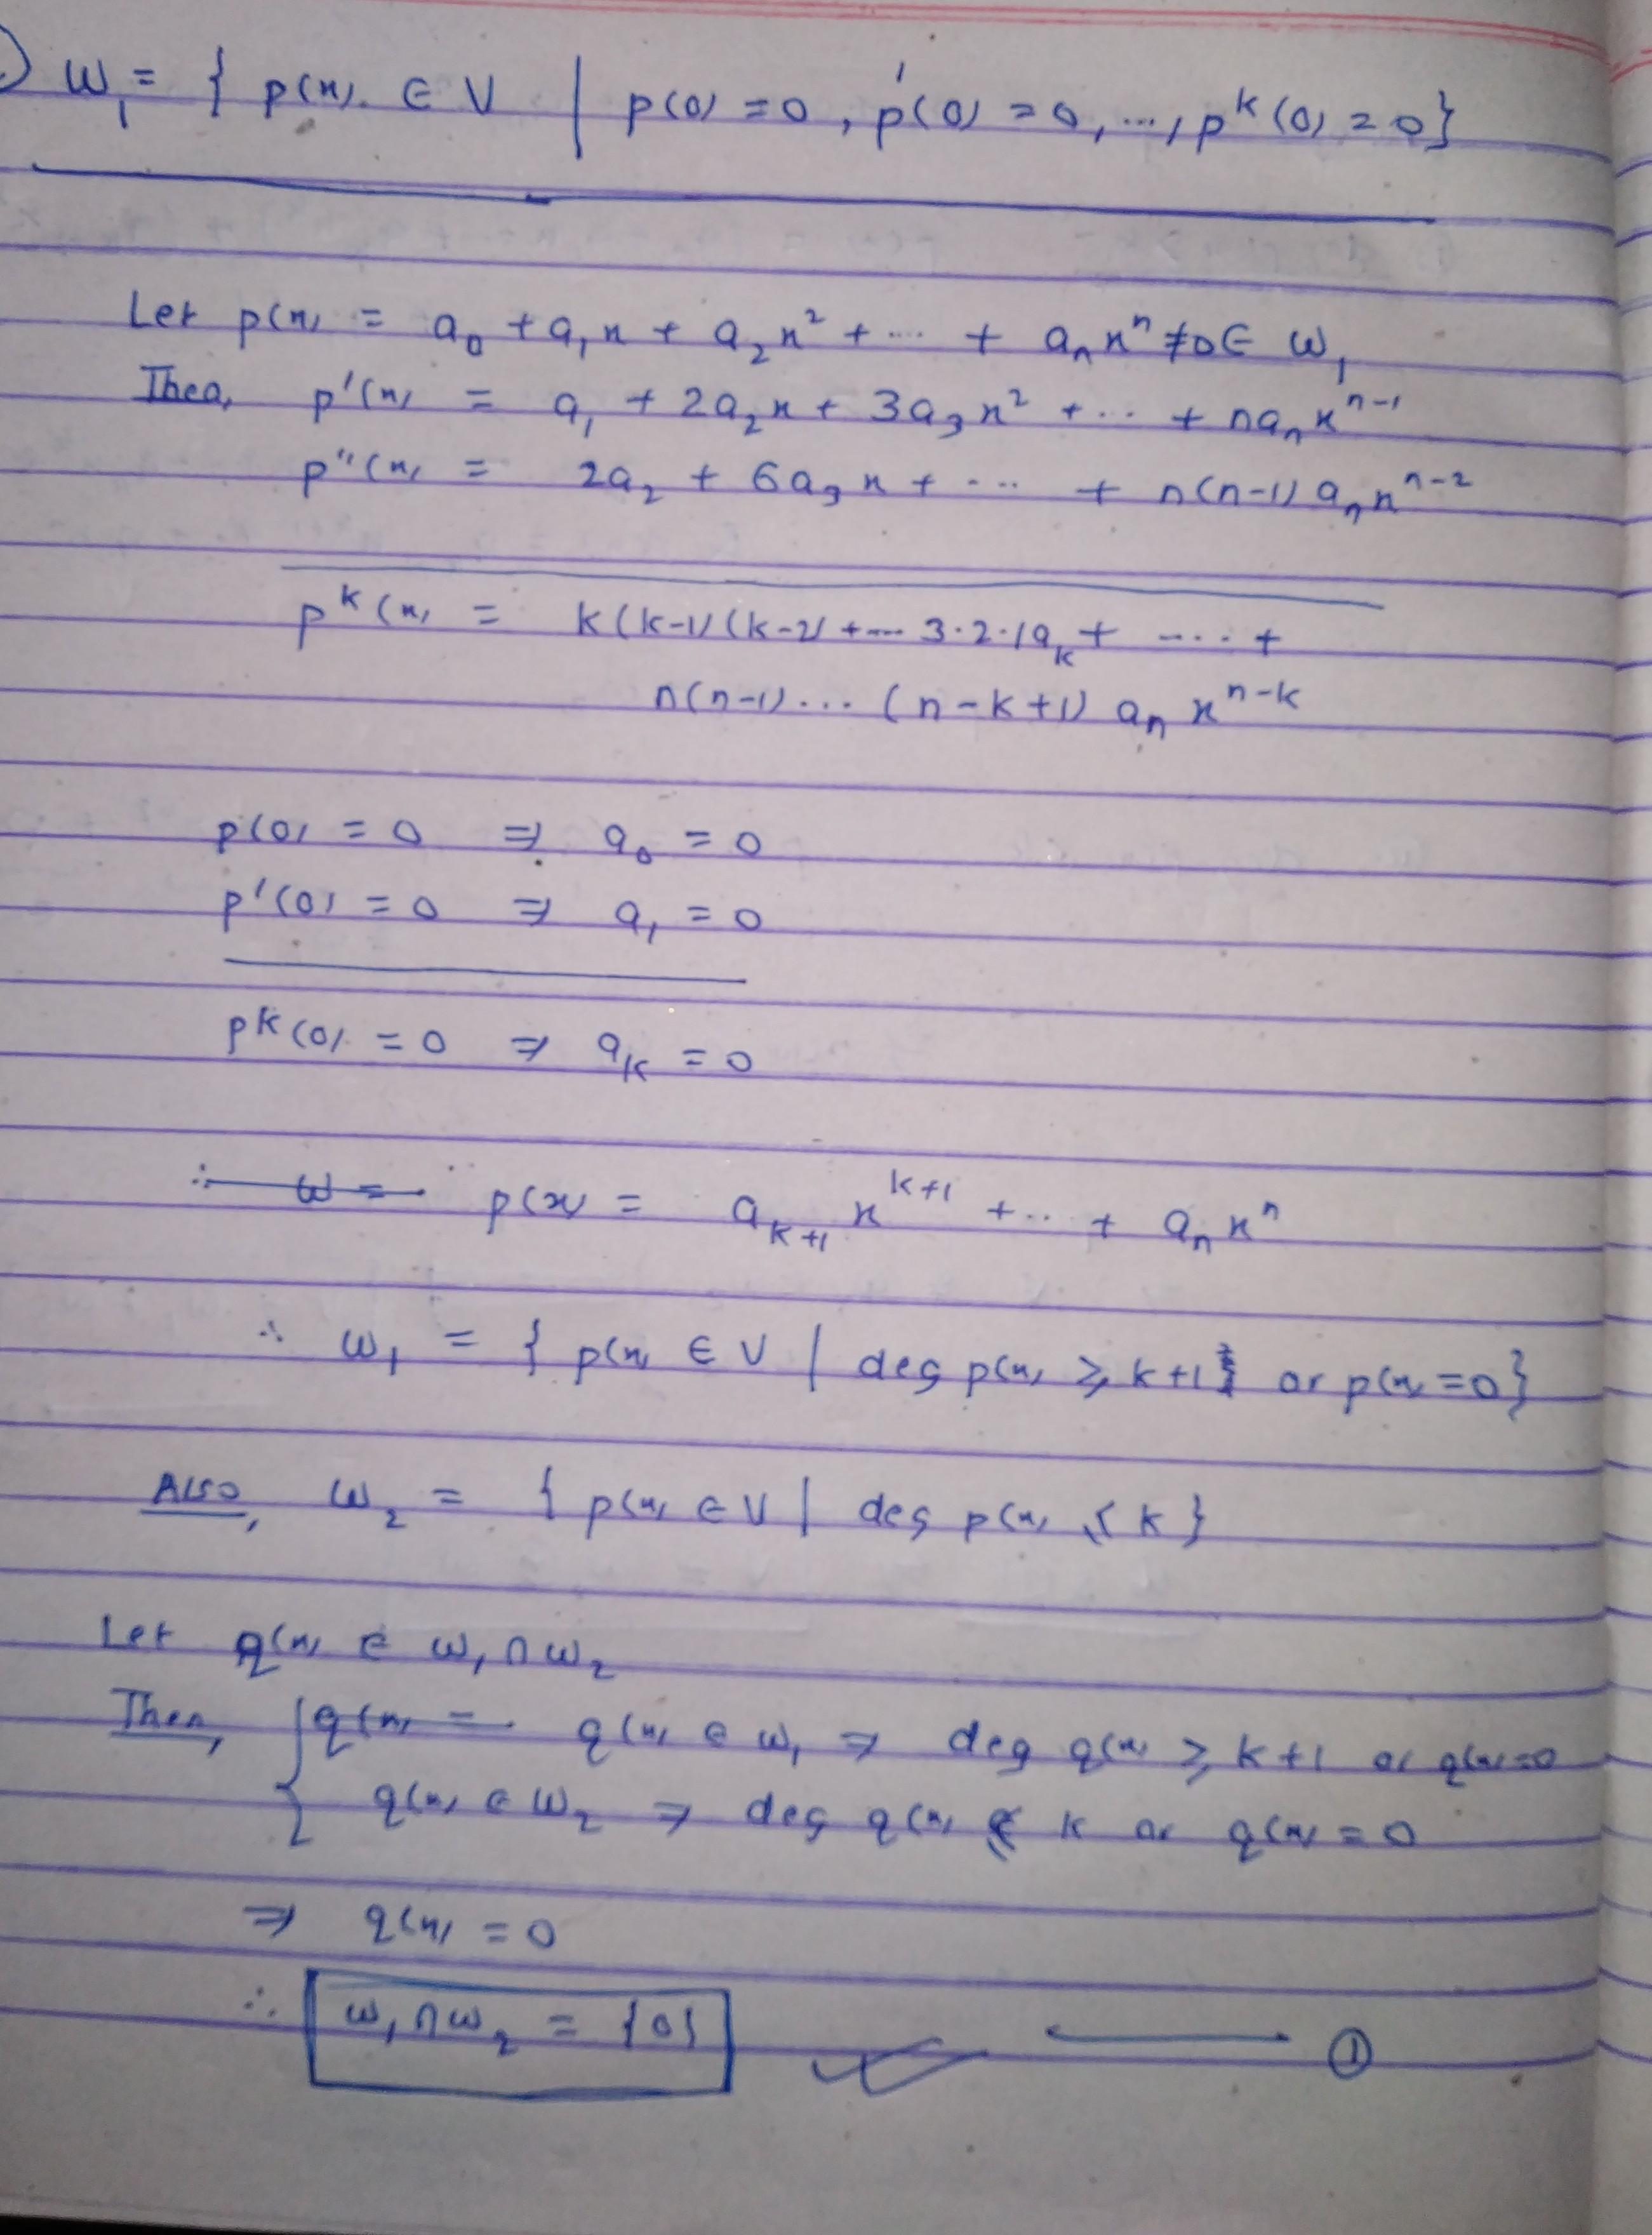 ) W₁ = { p(x) ∈ V | p(0) = 0, p'(0) = 0, ..., p^k(0) = 0}
Let p(x) = a₀ + a₁x + a₂x² + ... + aₙxⁿ ≠ 0 ∈ W₁
Then, p'(x) = a₁ + 2a₂x + 3a₃x² + ... + naₙx^(n-1)
p''(x) = 2a₂ + 6a₃x + ... + n(n-1)aₙx^(n-2)
p^k(x) = k(k-1)(k-2) + ... 3·2·1a_k + .... +
n(n-1)... (n-k+1) aₙ x^(n-k)
p(0) = 0 ⇒ a₀ = 0
p'(0) = 0 ⇒ a₁ = 0
p^k(0) = 0 ⇒ a_k = 0
∴ W = p(x) = a_(k+1) x^(k+1) + .. + aₙxⁿ
∴ W₁ = { p(x) ∈ V | deg p(x) ≥ k+1 or p(x) = 0}
Also, W₂ = { p(x) ∈ V | deg p(x) ≤ k }
Let q(x) ∈ W₁ ∩ W₂
Then, { q(x) = q(x) ∈ W₁ ⇒ deg q(x) ≥ k+1 or q(x) = 0
q(x) ∈ W₂ ⇒ deg q(x) ≤ k or q(x) = 0
⇒ q(x) = 0
∴ W₁ ∩ W₂ = {0} ①